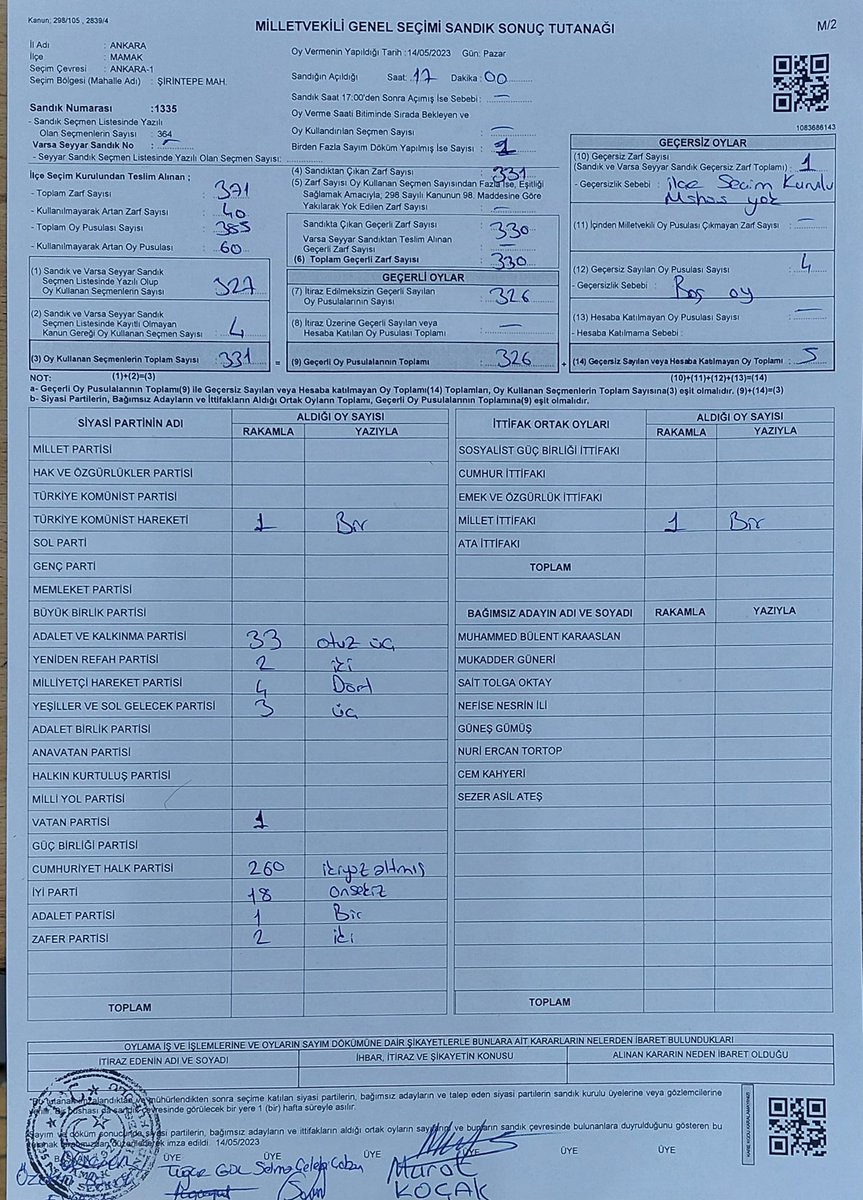 Kanun; 298/105 , 2839/4
MİLLETVEKİLİ GENEL SEÇİMİ SANDIK SONUÇ TUTANAĞI
M/2
İl Adı : ANKARA
İlçe : MAMAK
Seçim Çevresi : ANKARA-1
Seçim Bölgesi (Mahalle Adı) : ŞİRİNTEPE MAH.
Sandık Numarası :1335
- Sandık Seçmen Listesinde Yazılı
Olan Seçmenlerin Sayısı : 364
Varsa Seyyar Sandık No : —
- Seyyar Sandık Seçmen Listesinde Yazılı Olan Seçmen Sayısı:
İlçe Seçim Kurulundan Teslim Alınan ;
- Toplam Zarf Sayısı : 371
- Kullanılmayarak Artan Zarf Sayısı : 40
- Toplam Oy Pusulası Sayısı : 385
- Kullanılmayarak Artan Oy Pusulası : 60
(1) Sandık ve Varsa Seyyar Sandık
Seçmen Listesinde Yazılı Olup
Oy Kullanan Seçmenlerin Sayısı : 327
(2) Sandık ve Varsa Seyyar Sandık
Seçmen Listesinde Kayıtlı Olmayan
Kanun Gereği Oy Kullanan Seçmen Sayısı : 4
(3) Oy Kullanan Seçmenlerin Toplam Sayısı : 331
Oy Vermenin Yapıldığı Tarih :14/05/2023 Gün: Pazar
Sandığın Açıldığı Saat: 17 Dakika : 00
Sandık Saat 17:00'den Sonra Açmış İse Sebebi : —
Oy Verme Saati Bitiminde Sırada Bekleyen ve
Oy Kullandırılan Seçmen Sayısı : —
Birden Fazla Sayım Döküm Yapılmış İse Sayısı : 1
(4) Sandıktan Çıkan Zarf Sayısı : 331
(5) Zarf Sayısı Oy Kullanan Seçmen Sayısından Fazla İse, Eşitliği
Sağlamak Amacıyla, 298 Sayılı Kanunun 98. Maddesine Göre
Yakılarak Yok Edilen Zarf Sayısı : —
Sandıkta Çıkan Geçerli Zarf Sayısı : 330
Varsa Seyyar Sandıktan Teslim Alınan
Geçerli Zarf Sayısı : —
(6) Toplam Geçerli Zarf Sayısı : 330
GEÇERLİ OYLAR
(7) İtiraz Edilmeksizin Geçerli Sayılan
Oy Pusulalarının Sayısı : 326
(8) İtiraz Üzerine Geçerli Sayılan veya
Hesaba Katılan Oy Pusulası Toplamı : —
= (9) Geçerli Oy Pusulalarının Toplamı : 326 +
1083686143
GEÇERSİZ OYLAR
(10) Geçersiz Zarf Sayısı
(Sandık ve Varsa Seyyar Sandık Geçersiz Zarf Toplamı) : 1
- Geçersizlik Sebebi : ilçe Seçim Kurulu
Mührü yok
(11) İçinden Milletvekili Oy Pusulası Çıkmayan Zarf Sayısı : —
(12) Geçersiz Sayılan Oy Pusulası Sayısı : 4
- Geçersizlik Sebebi : Boş oy
(13) Hesaba Katılmayan Oy Pusulası Sayısı : —
- Hesaba Katılmama Sebebi :
(14) Geçersiz Sayılan veya Hesaba Katılmayan Oy Toplamı : 5
NOT: (1)+(2)=(3) (10)+(11)+(12)+(13)=(14)
a- Geçerli Oy Pusulalarının Toplamı(9) ile Geçersiz Sayılan veya Hesaba katılmayan Oy Toplamı(14) Toplamları, Oy Kullanan Seçmenlerin Toplam Sayısına(3) eşit olmalıdır. (9)+(14)=(3)
b- Siyasi Partilerin, Bağımsız Adayların ve İttifakların Aldığı Ortak Oyların Toplamı, Geçerli Oy Pusulalarının Toplamına(9) eşit olmalıdır.
SİYASİ PARTİNİN ADI ALDIĞI OY SAYISI
RAKAMLA YAZIYLA
MİLLET PARTİSİ
HAK VE ÖZGÜRLÜKLER PARTİSİ
TÜRKİYE KOMÜNİST PARTİSİ
TÜRKİYE KOMÜNİST HAREKETİ 1 Bir
SOL PARTİ
GENÇ PARTİ
MEMLEKET PARTİSİ
BÜYÜK BİRLİK PARTİSİ
ADALET VE KALKINMA PARTİSİ 33 otuz üç
YENİDEN REFAH PARTİSİ 2 iki
MİLLİYETÇİ HAREKET PARTİSİ 4 Dört
YEŞİLLER VE SOL GELECEK PARTİSİ 3 üç
ADALET BİRLİK PARTİSİ
ANAVATAN PARTİSİ
HALKIN KURTULUŞ PARTİSİ
MİLLİ YOL PARTİSİ
VATAN PARTİSİ 1
GÜÇ BİRLİĞİ PARTİSİ
CUMHURİYET HALK PARTİSİ 260 ikiyüz altmış
İYİ PARTİ 18 onsekiz
ADALET PARTİSİ 1 Bir
ZAFER PARTİSİ 2 iki
TOPLAM
İTTİFAK ORTAK OYLARI ALDIĞI OY SAYISI
RAKAMLA YAZIYLA
SOSYALİST GÜÇ BİRLİĞİ İTTİFAKI
CUMHUR İTTİFAKI
EMEK VE ÖZGÜRLÜK İTTİFAKI
MİLLET İTTİFAKI 1 Bir
ATA İTTİFAKI
TOPLAM
BAĞIMSIZ ADAYIN ADI VE SOYADI RAKAMLA YAZIYLA
MUHAMMED BÜLENT KARAASLAN
MUKADDER GÜNERİ
SAİT TOLGA OKTAY
NEFİSE NESRİN İLİ
GÜNEŞ GÜMÜŞ
NURİ ERCAN TORTOP
CEM KAHYERİ
SEZER ASİL ATEŞ
TOPLAM
OYLAMA İŞ VE İŞLEMLERİNE VE OYLARIN SAYIM DÖKÜMÜNE DAİR ŞİKAYETLERLE BUNLARA AİT KARARLARIN NELERDEN İBARET BULUNDUKLARI
İTİRAZ EDENİN ADI VE SOYADI İHBAR, İTİRAZ VE ŞİKAYETİN KONUSU ALINAN KARARIN NEDEN İBARET OLDUĞU
mühürlendikten sonra seçime katılan siyasi partilerin, bağımsız adayların ve talep eden siyasi partilerin sandık kurulu üyelerine veya gözlemcilerine
görülecek bir yere 1 (bir) hafta süreyle asılır.
partilerin, bağımsız adayların ve ittifakların aldığı ortak oyların sayılarını ve bunların sandık çevresinde bulunanlara duyrulduğunu gösteren bu
imza edildi. 14/05/2023
ÜYE ÜYE ÜYE ÜYE ÜYE
Tuğçe GÜL Selma Çelebi Çoban Murat
KOÇAK